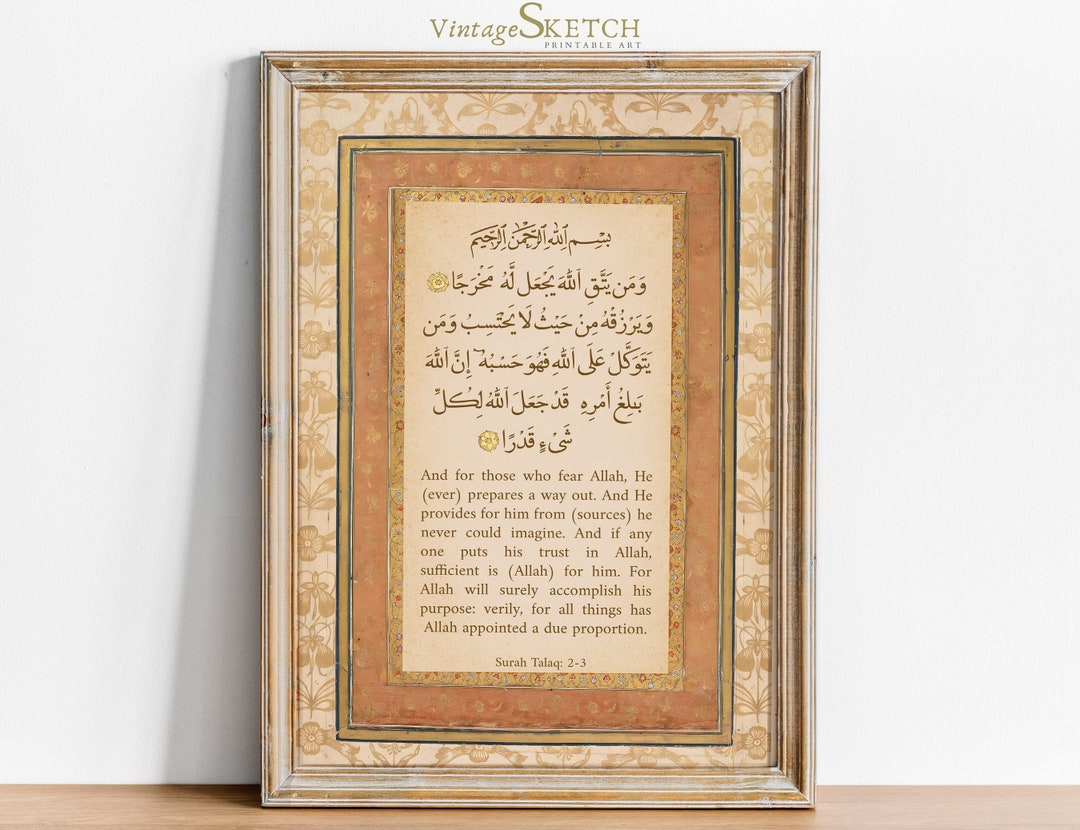 VintageSKETCH
PRINTABLE ART
بِسْمِ ٱللَّهِ ٱلرَّحْمَٰنِ ٱلرَّحِيمِ
وَمَن يَتَّقِ ٱللَّهَ يَجْعَل لَّهُۥ مَخْرَجًا
وَيَرْزُقْهُ مِنْ حَيْثُ لَا يَحْتَسِبُ وَمَن
يَتَوَكَّلْ عَلَى ٱللَّهِ فَهُوَ حَسْبُهُۥٓ إِنَّ ٱللَّهَ
بَٰلِغُ أَمْرِهِۦ قَدْ جَعَلَ ٱللَّهُ لِكُلِّ
شَىْءٍ قَدْرًا
And for those who fear Allah, He
(ever) prepares a way out. And He
provides for him from (sources) he
never could imagine. And if any
one puts his trust in Allah,
sufficient is (Allah) for him. For
Allah will surely accomplish his
purpose: verily, for all things has
Allah appointed a due proportion.
Surah Talaq: 2-3